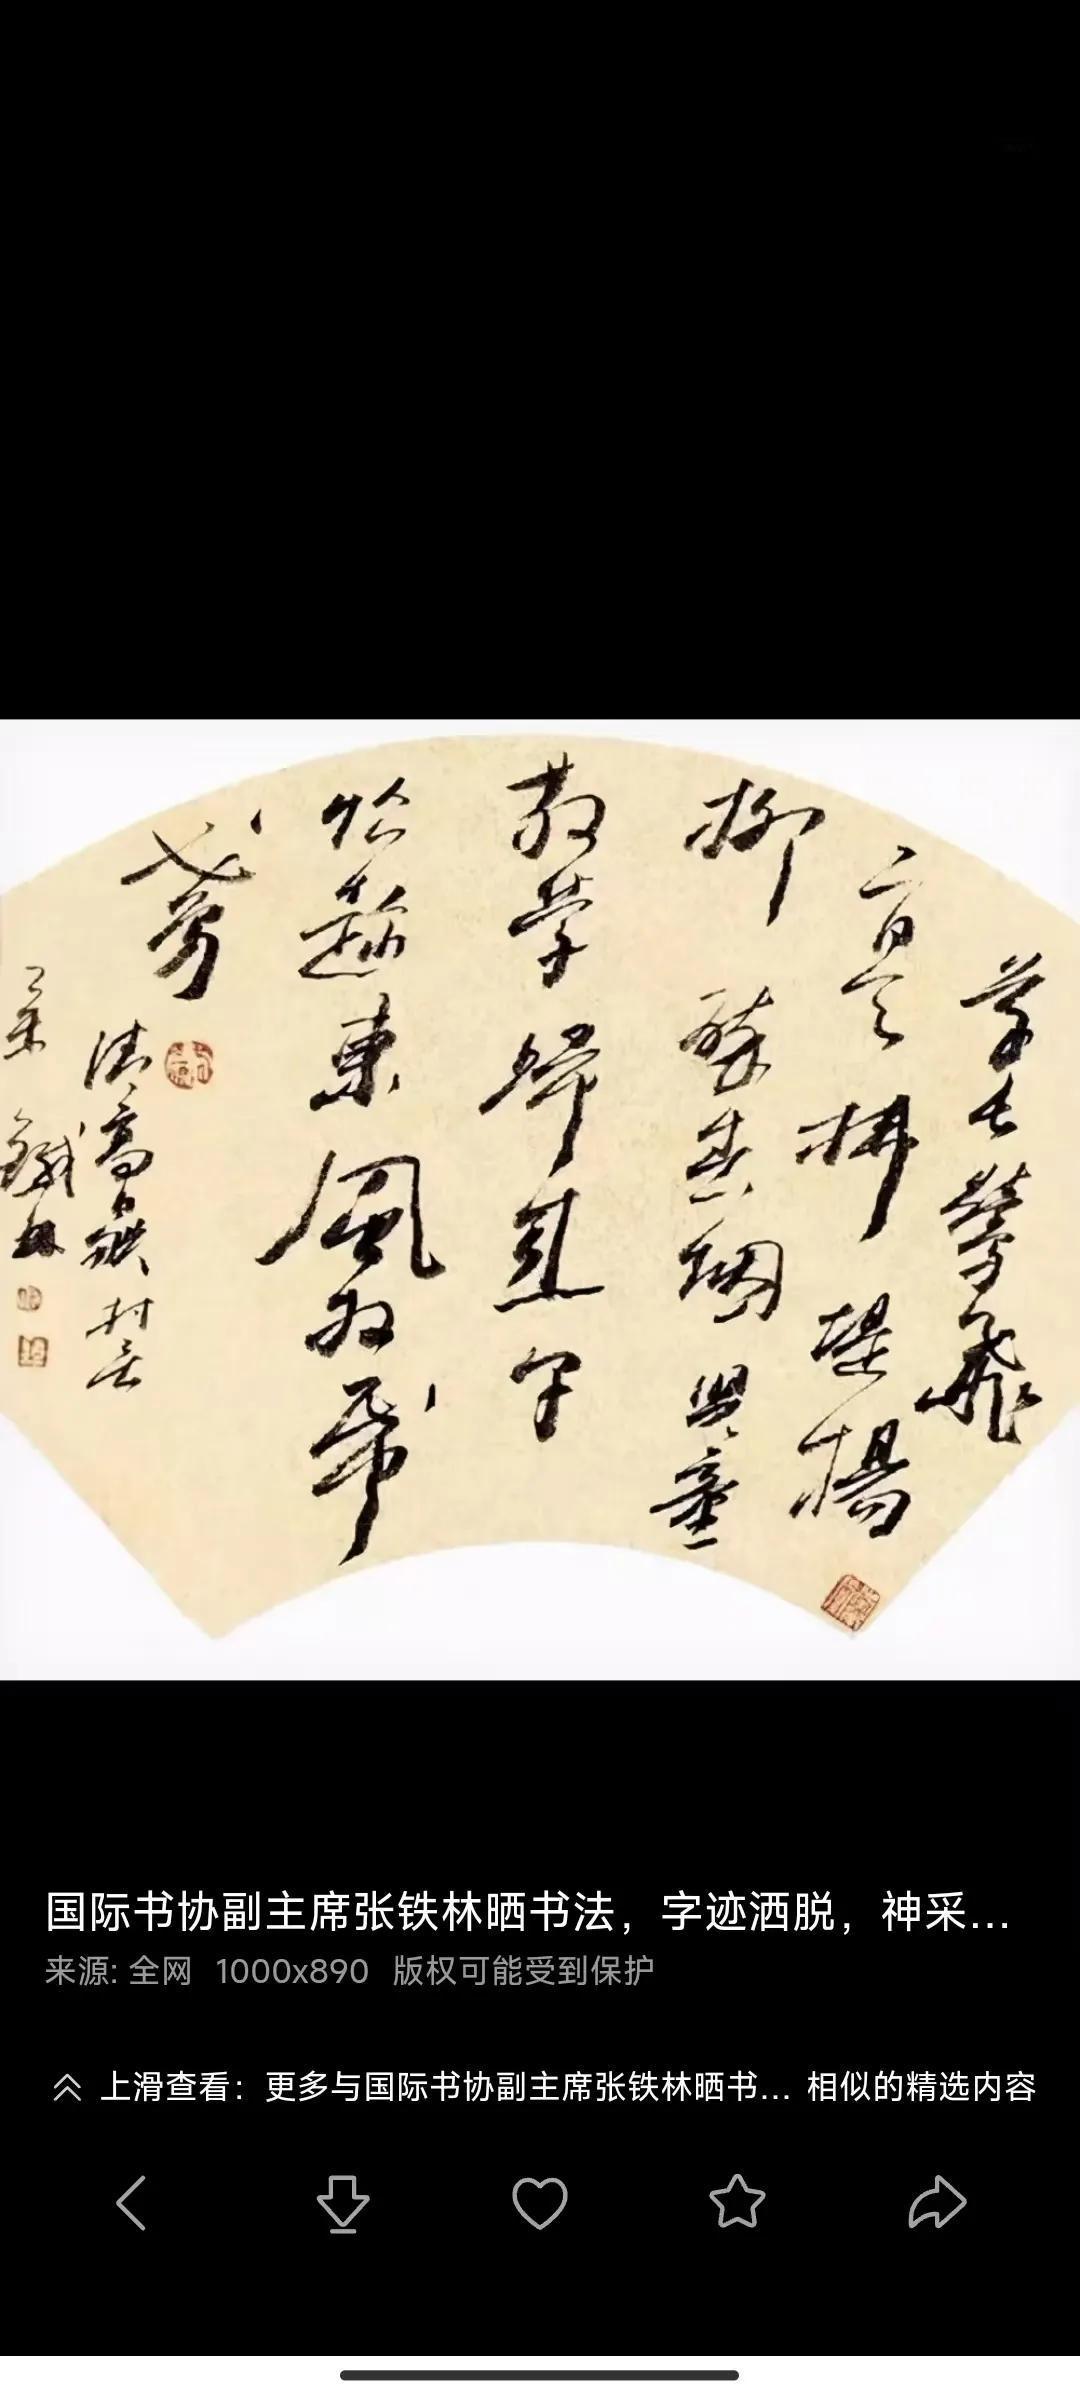 草长莺飞
二月天拂堤杨
柳醉春烟儿童
散学归来早
忙趁东风放纸
鸢
清高鼎村居
乙未 铁林
国际书协副主席张铁林晒书法，字迹洒脱，神采...
来源: 全网 1000x890 版权可能受到保护
上滑查看：更多与国际书协副主席张铁林晒书... 相似的精选内容